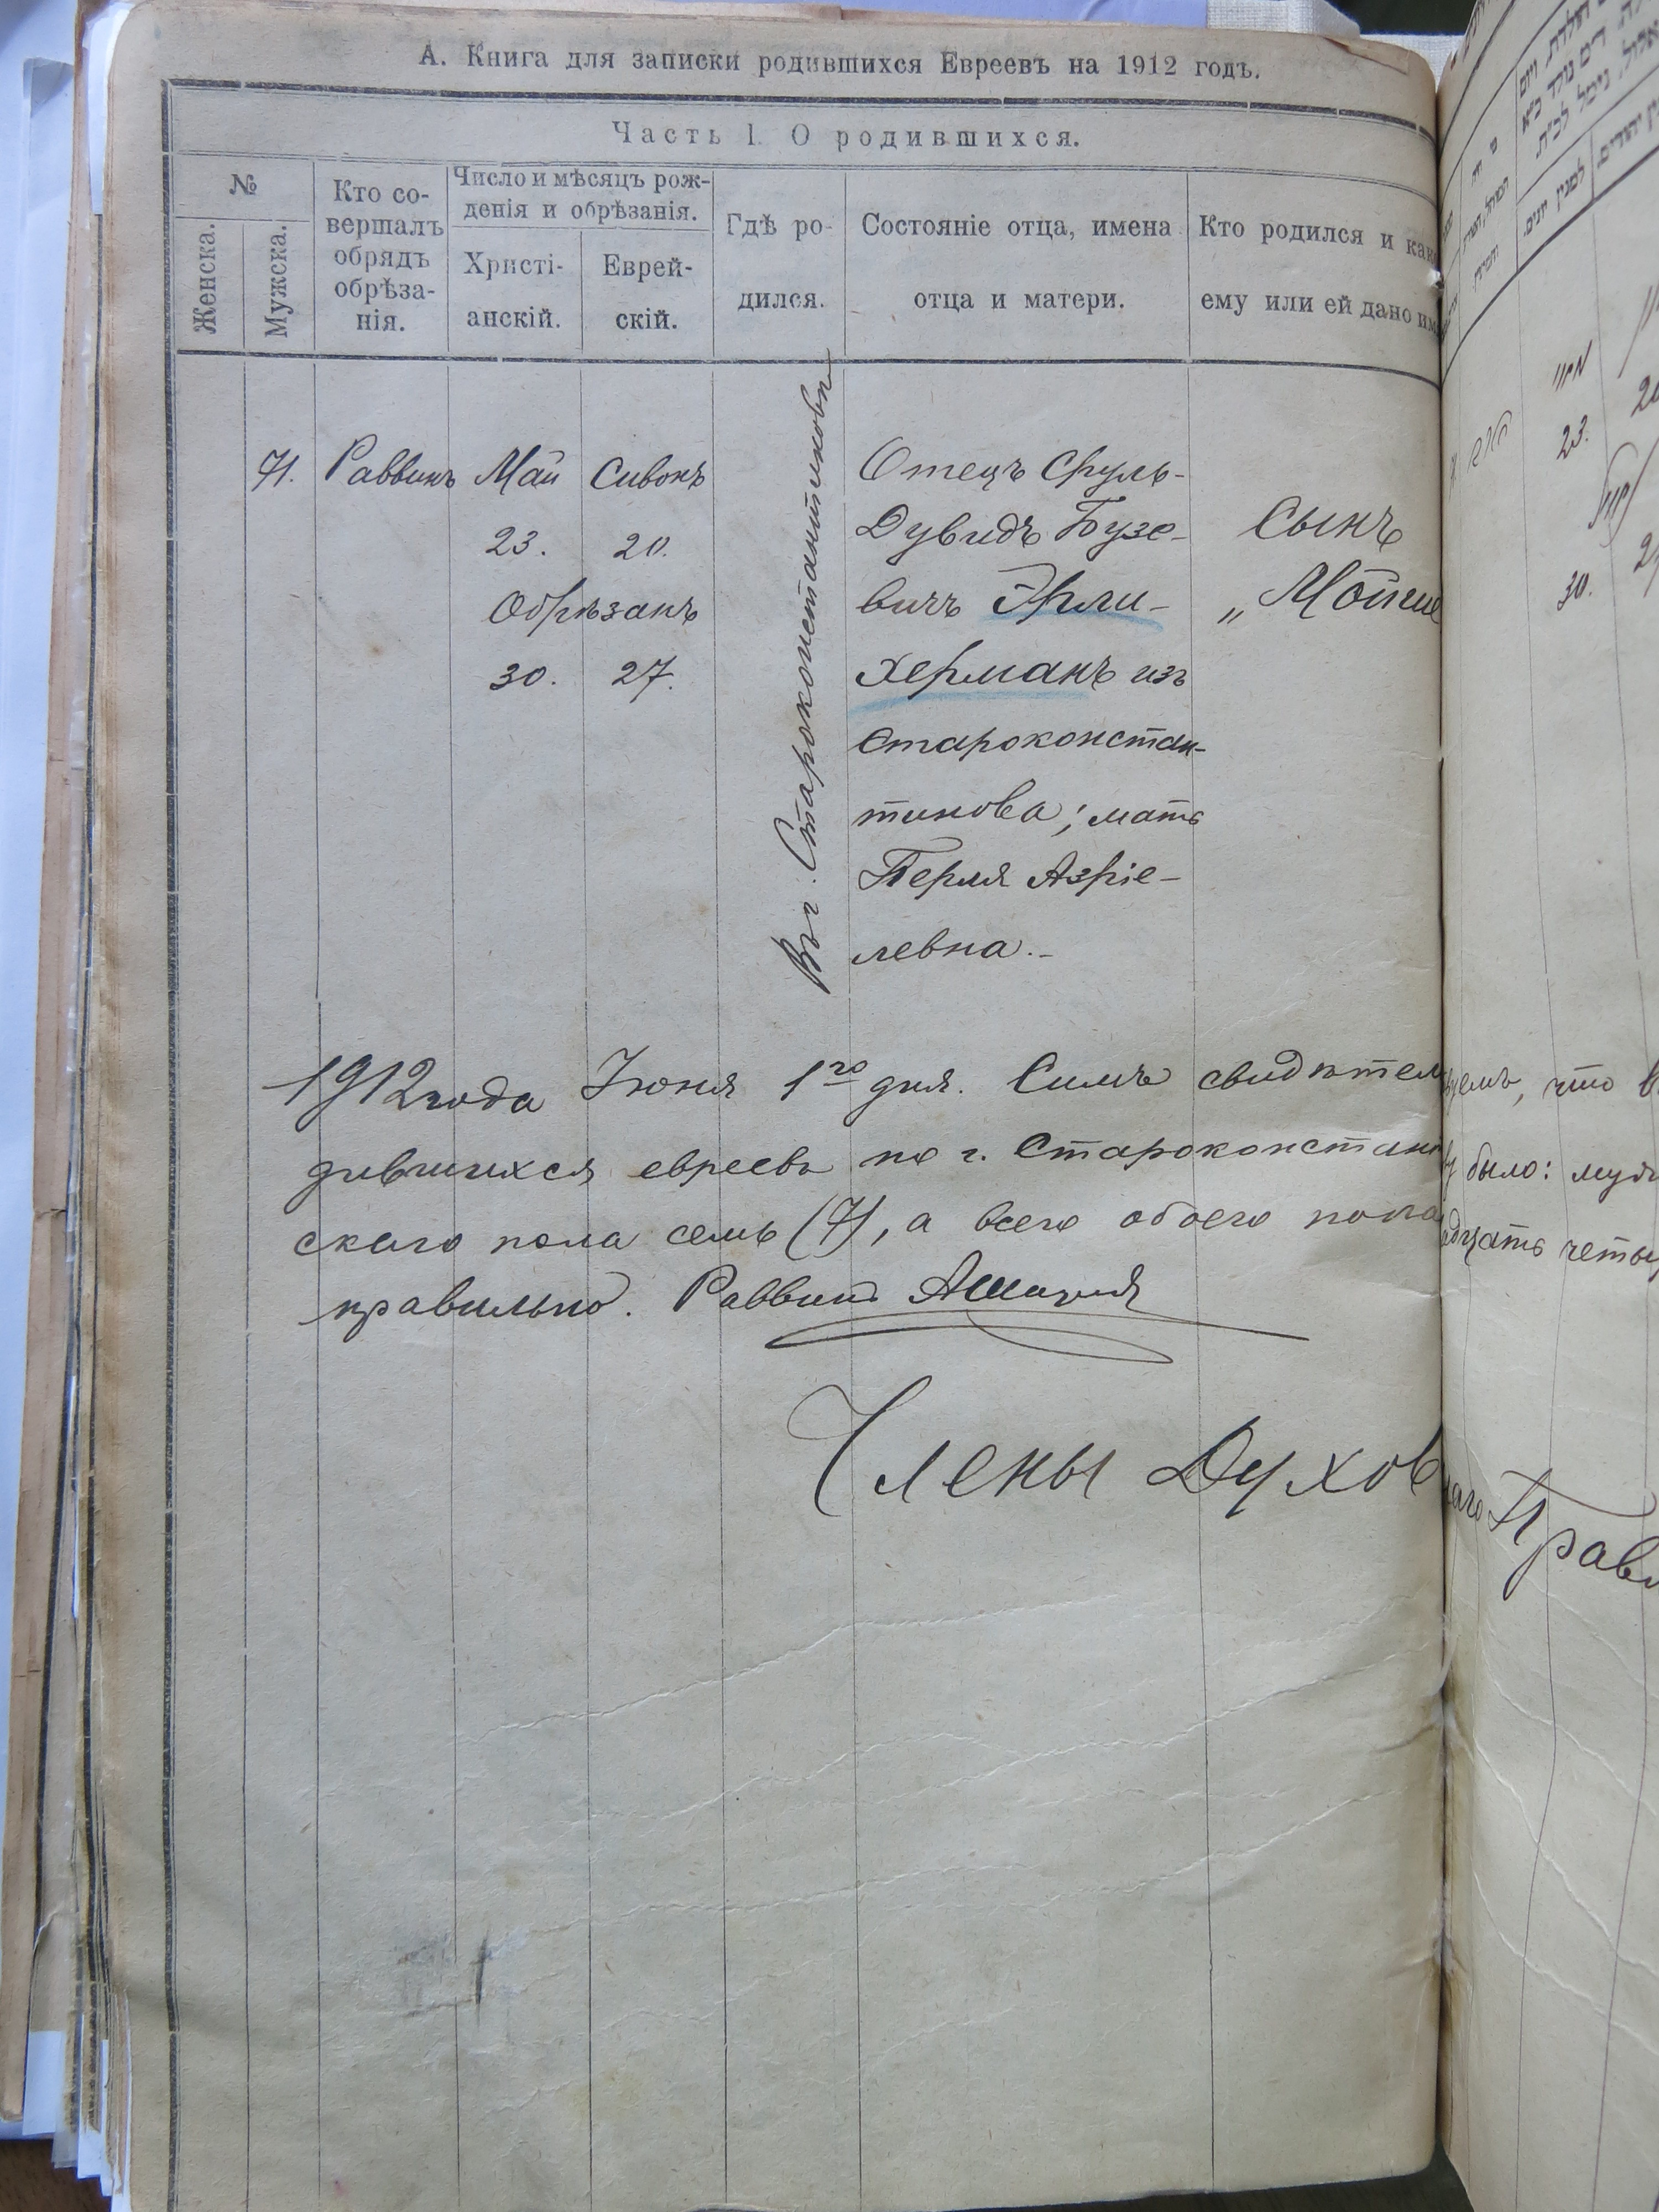 А. Книга для записки родившихся Евреевъ на 1912 годъ.
Часть 1. О родившихся.
№
Женска.
Мужска.
Кто со-
вершалъ
обрядъ
обрѣза-
нія.
Число и мѣсяцъ рож-
денія и обрѣзанія.
Христі-
анскій.
Еврей-
скій.
Гдѣ ро-
дился.
Состояніе отца, имена
отца и матери.
Кто родился и как
ему или ей дано им
71.
Раввинъ
Май
23.
Сивонъ
20.
Обрѣзанъ
30.
27.
Въ г. Староконстантиновѣ
Отецъ Сруль-
Дувидъ Бузе-
вичъ Эрли-
херманъ изъ
Староконстан-
тинова; мать
Перля Азріе-
левна.-
Сынъ
„Мойше
1912 года Іюня 1го дня. Симъ свидѣтел
дившихся евреевъ по г. Староконстан
скаго пола семь (7), а всего обоего пола
правильно. Раввинъ
Члены Духов
23.
30.
что в
было: муж
четы
Прав